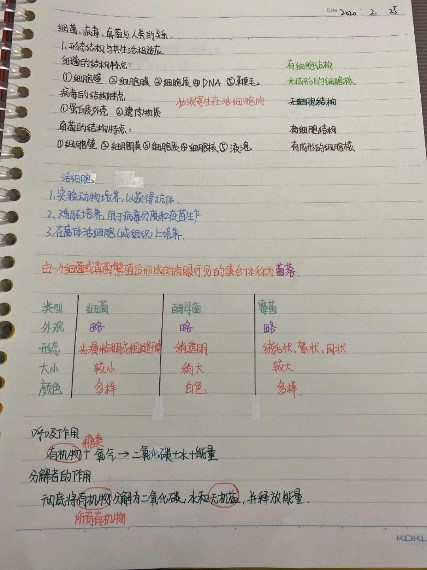 2020 2 25
细菌、病毒、真菌与人类的关系
1.形态结构与其生活相适应
细菌的结构特点: 有细胞结构
①细胞壁 ②细胞膜 ③细胞质 ④DNA ⑤鞭毛 无成形的细胞核
病毒的结构特点 必须寄生在活细胞内 无细胞结构
①蛋白质外壳 ②遗传物质
真菌的结构特点: 有细胞结构
①细胞壁 ②细胞膜 ③细胞质 ④细胞核 ⑤液泡 有成形的细胞核
活细胞
1.实验动物培养,以获得抗体
2.鸡胚培养,用于病毒分离和疫苗生产
3.在离体活细胞(或组织)上培养
由一个细菌或真菌繁殖后形成的肉眼可见的集合体称为菌落.
类型 细菌 酵母菌 霉菌
外观 略 略 略
形态 光滑粘稠或粗糙干燥 稍透明 绒毛状、絮状、网状
大小 较小 稍大 较大
颜色 多样 白色 多样
呼吸作用
糖类
有机物+氧气→二氧化碳+水+能量
分解者的作用
彻底将有机物分解为二氧化碳,水和无机盐,并释放能量.
所有有机物